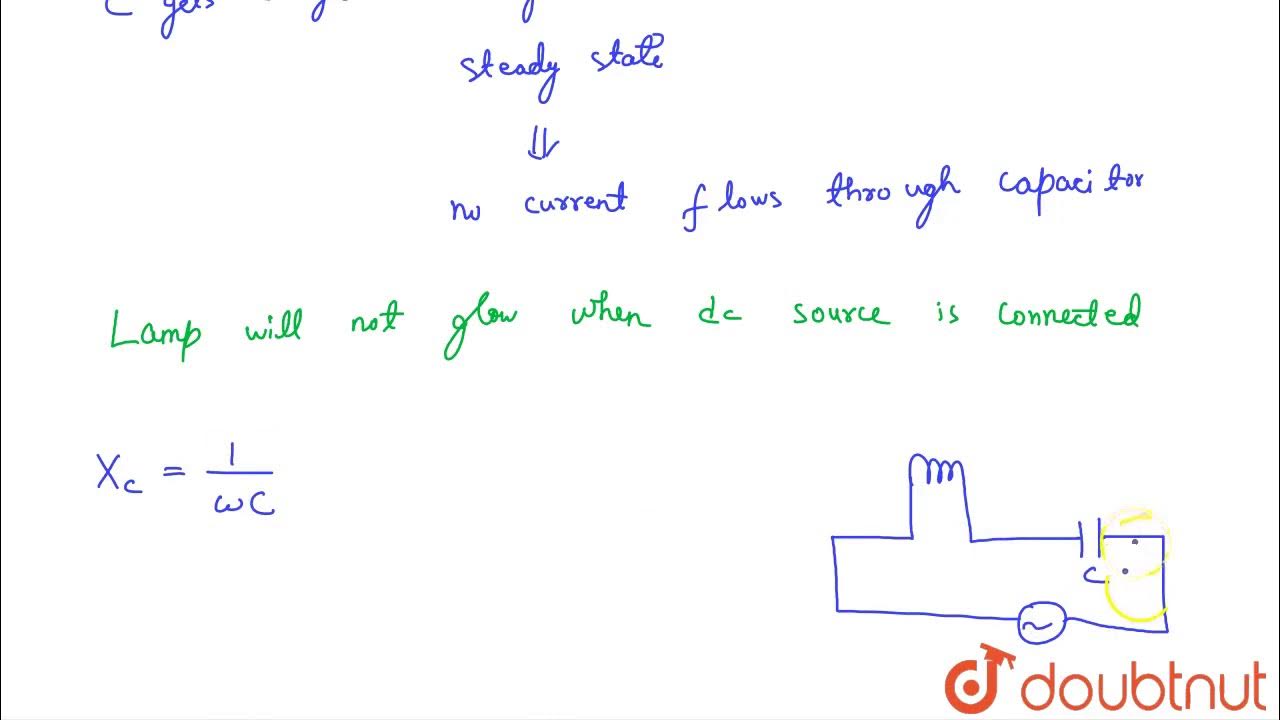 C gets
steady state
⇓
no current flows through capacitor
Lamp will not glow when dc source is connected
X_C = 1/ωC
C
~
doubtnut